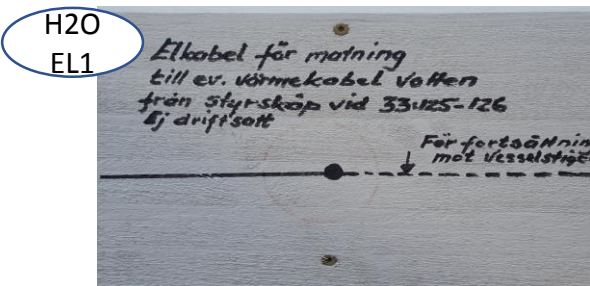 H2O
EL1
Elkabel för matning
till ev. värmekabel Vatten
från styrskåp vid 33:125-126
Ej driftsatt
För fortsättnin
mot Vesselstige